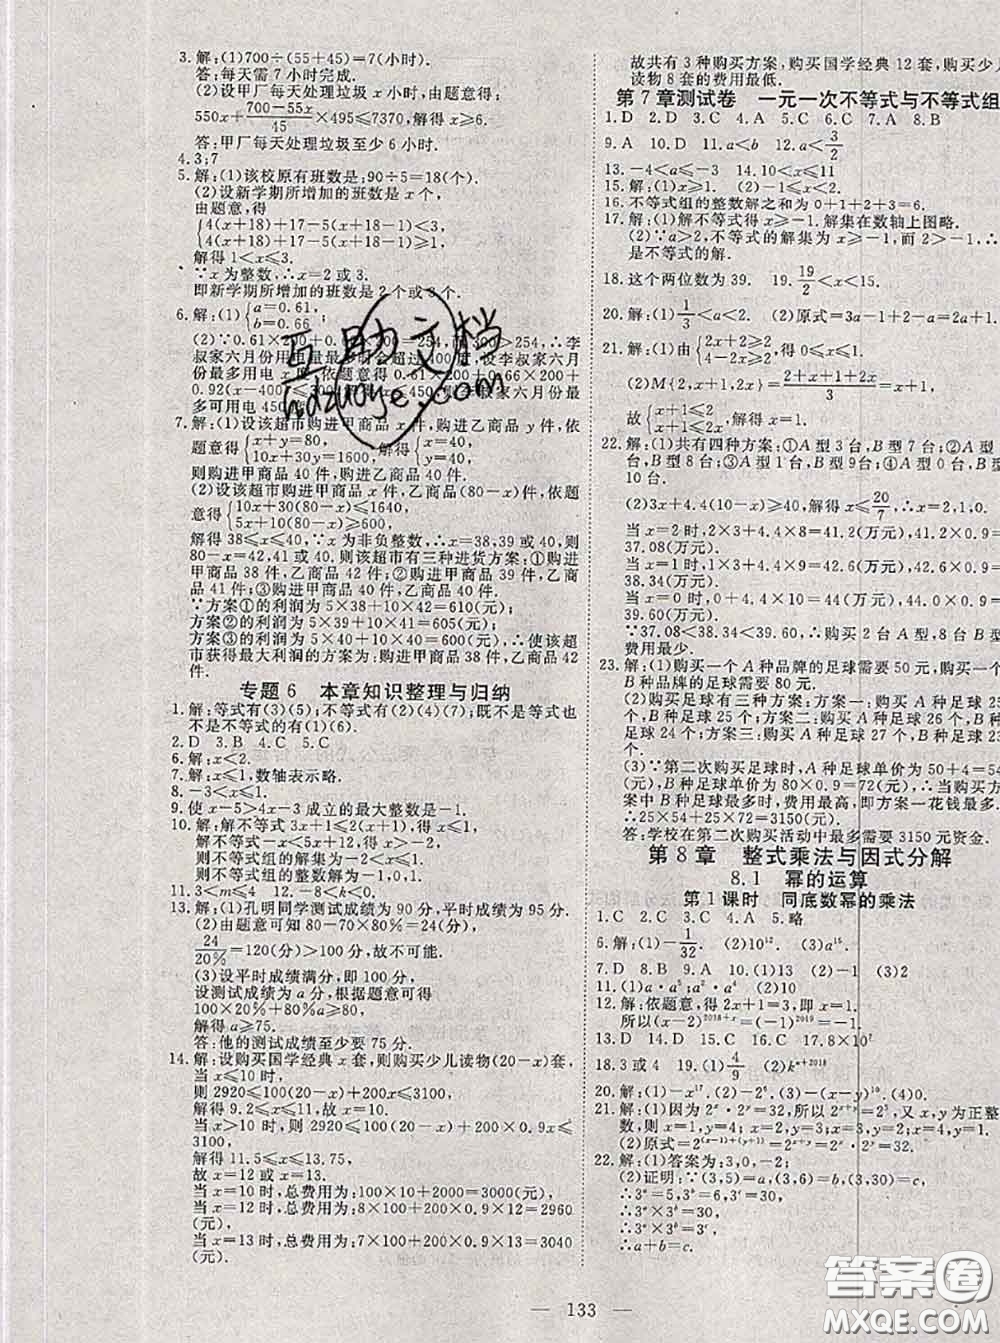 3.解:(1)700÷(55+45)=7(小时).
答:每天需 7 小时完成.
(2)设甲厂每天处理垃圾 x 小时,由题意得:
550x+\frac{700-55x}{45}×495≤7370,解得 x≥6.
答:甲厂每天处理垃圾至少 6 小时.
4.3;7
5.解:(1)该校原有班数是:90÷5=18(个).
(2)设新学期所增加的班数是 x 个.
由题意,得
{4(x+18)+17-5(x+18)<3,
4(x+18)+17-5(x+18)≥1,
解得 1<x≤3.
∵x 为整数,∴x=2 或 3.
即新学期所增加的班数是 2 个或 3 个.
6.解:(1){a=0.61,
b=0.66
(2)∵0.61×200+0.66×200=254,∴李
叔家六月份用电量最多
份最多用电 x 度
0.92(x-400)
多可用电 450 度.
7.解:(1)设该超市购进甲商品 x 件,购进乙商品 y 件,依
题意得{x+y=80,
10x+30y=1600, 解得{x=40,
y=40.
则购进甲商品 40 件,购进乙商品 40 件.
(2)设该超市购进甲商品 x 件,乙商品(80-x)件,依题
意得{10x+30(80-x)≤1640,
5x+10(80-x)≥600.
解得 38≤x≤40. ∵x 为非负整数,∴x=38,39 或 40,
80-x=42,41 或 40. 则该超市有三种进货方案:①购进
甲商品 38 件,乙商品 42 件;②购进甲商品 39 件,乙商
品 41 件;③购进甲商品 40 件,乙商品 40 件.
∵方案①的利润为 5×38+10×42=610(元);
方案②的利润为 5×39+10×41=605(元);
方案③的利润为 5×40+10×40=600(元),∴使该超
市获得最大利润的方案为:购进甲商品 38 件,乙商品 42
件.
专题 6 本章知识整理与归纳
1.解:等式有(3)(5);不等式有(2)(4)(7);既不是等式也
不是不等式的有(1)(6).
2.D 3.B 4.C 5.C
6.解:x<2.
7.解:x≤1,数轴表示略.
8.-3<x≤1
9.使 x-5>4x-3 成立的最大整数是-1.
10.解:解不等式 3x+1≤2(x+1),得 x≤1.
解不等式-x<5x+12,得 x>-2.
则不等式组的解集为-2<x≤1.
则不等式组的整数解为-1,0,1.
11.3<m≤4 12.-3<k<0
13.解:(1)孔明同学测试成绩为 90 分,平时成绩为 95 分.
(2)由题意可知 80-70×80%=24(分),
\frac{24}{20%}=120(分)>100 分,故不可能.
(3)设平时成绩满分,即 100 分,
设测试成绩为 a 分,根据题意可得
100×20%+80%a≥80,
解得 a≥75.
答:他的测试成绩至少要 75 分.
14.解:设购买国学经典 x 套,则购买少儿读物(20-x)套,
当 x≤10 时,
则 2920≤100×(20-x)+200x≤3100,
解得 9.2≤x≤11,故 x=10.
当 x>10 时,则 2920≤100×(20-x)+200×0.9x≤
3100,
解得 11.5≤x≤13.75,
故 x=12 或 x=13.
当 x=10 时,总费用为:100×10+2000=3000(元),
当 x=12 时,总费用为:8×100+200×0.9×12=2960
(元),
当 x=13 时,总费用为:7×100+200×0.9×13=3040
(元).
故共有 3 种购买方案,购买国学经典 12 套,购买少儿
读物 8 套的费用最低.
第 7 章测试卷 一元一次不等式与不等式组
1.D 2.D 3.C 4.A 5.C 6.C 7.A 8.B
9.A 10.D 11.a<b 12.a<\frac{3}{2}
13.-4<a≤-3 14.10<x≤
15.解:(1)x≥1. (2)-1≤x<
16.不等式组的整数解之和为 0+1+2+3=6.
17.解:(1)解不等式得 x≥-1. 解集在数轴上图略.
(2)∵a>2,不等式的解集为 x≥-1,而
是不等式的解.
18.这个两位数为 39. 19.\frac{19}{2}<x<
20.解:(1)\frac{1}{3}<a<2. (2)原式=3a-1+2-a=2a+1.
21.解:(1)由{2x+2≥2,
4-2x≥2, 得 0≤x≤1.
(2)M{2,x+1,2x}=\frac{2+x+1+2x}{3}=x+1,
故{x+1≤2
x+1≤2x. 解得:x=1.
22.解:(1)共有四种方案:①A 型 3 台,B 型 7 台;
B 型 8 台;③A 型 1 台,B 型 9 台;④A 型 0 台,
10 台.
(2)3x+4.4(10-x)≥40,解得 x≤\frac{20}{7},∴x=2,1,0.
当 x=2 时,2×3+4.4×8=41.2(万元),41.2×0.9=
37.08(万元).
当 x=1 时,1×3+4.4×9=42.6(万元),42.6×0.9=
38.34(万元).
当 x=0 时,0×3+4.4×10=44(万元),44×0.9=
39.60(万元).
∵37.08<38.34<39.60. ∴购买 2 台 A 型,8 台 B 型
费用最少.
23.解:(1)购买一个 A 种品牌的足球需要 50 元,购买一个
B 种品牌的足球需要 80 元.
(2)购买足球有三种方案:方案一:购买 A 种足球 25
个,B 种足球 25 个;方案二:购买 A 种足球 26 个,B
足球 24 个;方案三:购买 A 种足球 27 个,B 种足球
个.
(3)∵第二次购买足球时,A 种足球单价为 50+4=54
(元),B 种足球单价为 80×0.9=72(元),
种品牌足球最多时,费用最高,即方案一花钱最多.
∴25×54+25×72=3150(元).
答:学校在第二次购买活动中最多需要 3150 元资金.
第 8 章 整式乘法与因式分解
8.1 幂的运算
第 1 课时 同底数幂的乘法
1.C 2.C 3.C 4.A 5.略
6.解:(1)-\frac{1}{32} (2)10¹². (3)a¹⁵.
7.D 8.B 9.A 10.(1)0 (2)-1 (3)2
11.(1)a·a⁵;a²·a⁴ (2)10
12.解:依题意,得 2x+1=3,即 x=1.
所以(x-2)²⁰¹⁸⁺ˣ=(-1)²⁰¹⁹=-1.
13.D 14.D 15.C 16.C 17.8×10⁷
18.3 或 4 19.(1)\frac{4}{9} (2)kⁿ⁺²⁰¹⁸
20.解:(1)-x¹⁷. (2)-2⁶. (3)-(x-y)¹⁰. (4)0.
21.解:(1)因为 2ˣ·2ʸ=32,所以 2ˣ⁺ʸ=2⁵,又 x,y 为正整
数,则 x=1,y=4; x=2,y=3; x=3,y=2; x=4,y=1.
(2)原式=2⁽ˣ⁻¹⁾⁺⁽ʸ⁺¹⁾=2ˣ⁺ʸ=2⁵=32.
22.解:(1)答案为:3,0,-2;
(2)证明:∵(3,5)=a,(3,6)=b,(3,30)=c,
∴3ᵃ=5,3ᵇ=6,3ᶜ=30,
∴3ᵃ×3ᵇ=30,
∴3ᵃ×3ᵇ=3ᶜ,
∴a+b=c.
互助文档
hdzuoye.com
133
答案圈
MXQE.COM